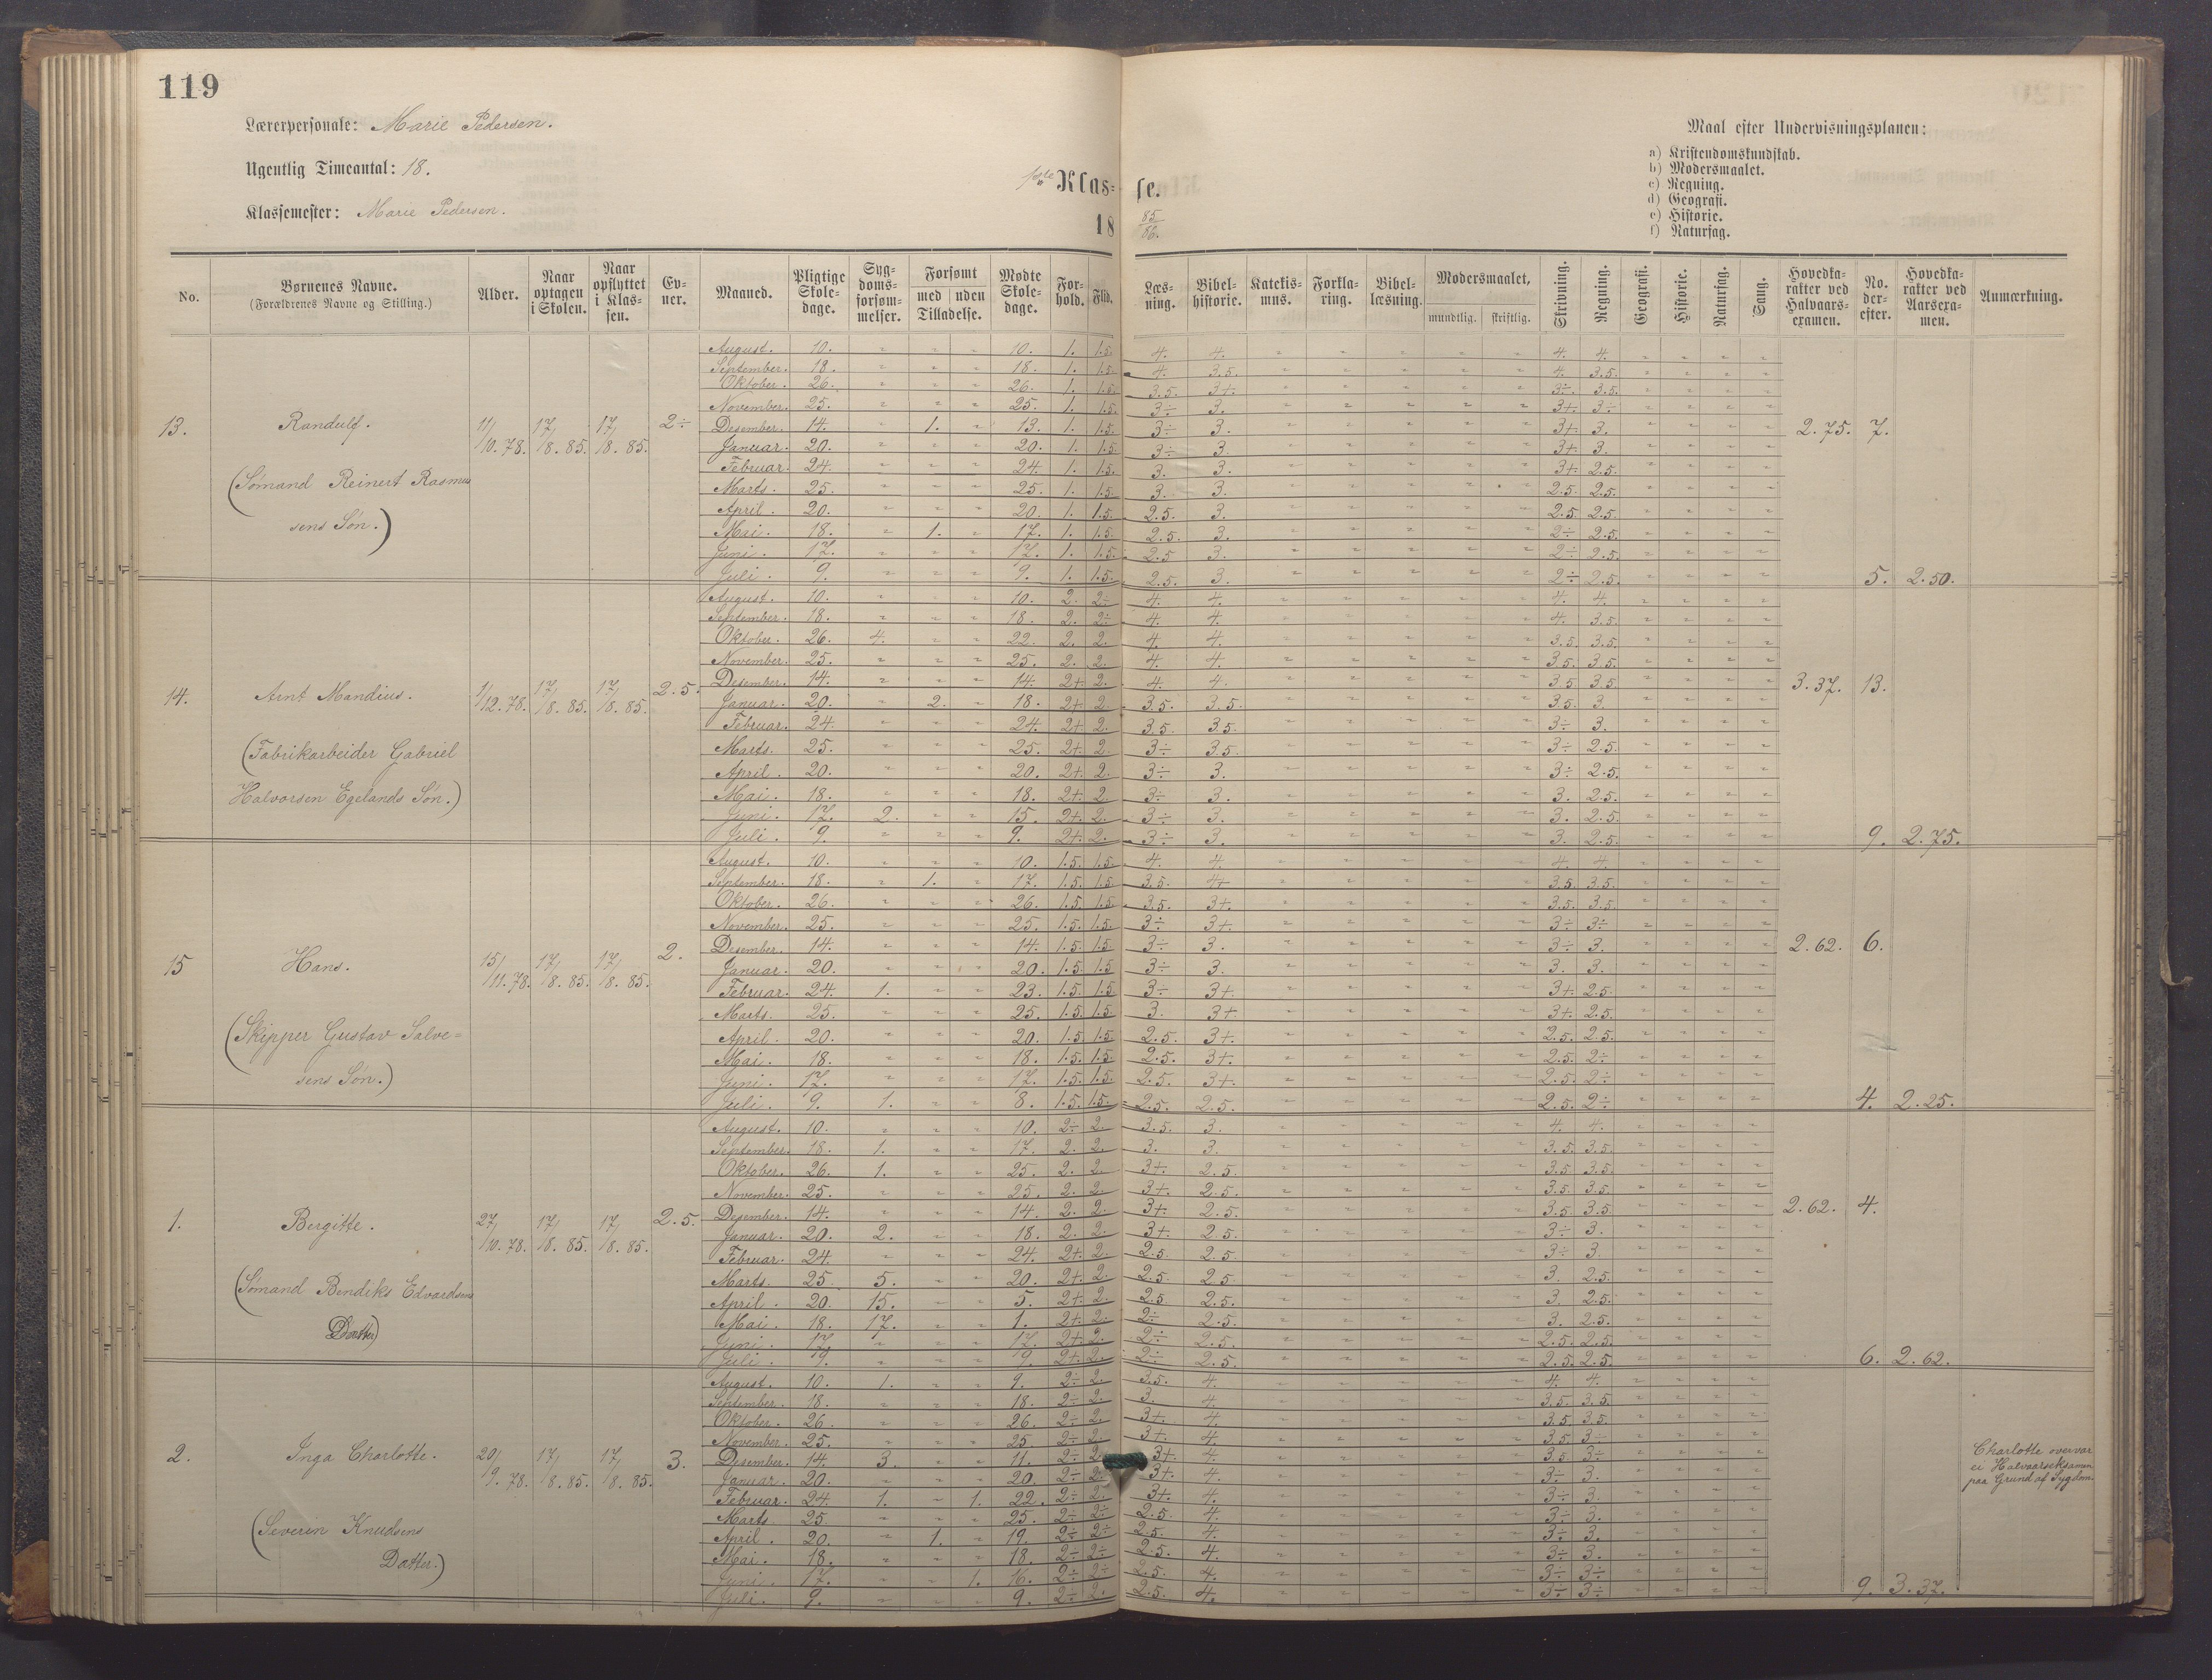 119
Lærerpersonale: Marie Pedersen.
Ugentlig Timeantal: 18.
Klassemester: Marie Pedersen.
1ste Klas= se.
18 85/86.
Maal efter Undervisningsplanen:
a) Kristendomskundskab.
b) Modersmaalet.
c) Regning.
d) Geografi.
e) Historie.
f) Naturfag.
No. | Børnenes Navne. (Forældrenes Navne og Stilling.) | Alder. | Naar optagen i Skolen. | Naar opflyttet i Klas-sen. | Ev-ner. | Maaned. | Pligtige Skole-dage. | Syg-doms-forsøm-melser. | Forsømt med uden Tilladelse. | Mødte Skole-dage. | For-hold. | Flid. | Læs-ning. | Bibel-historie. | Katekis-mus. | Forkla-ring. | Bibel-læsning. | Modersmaalet, mundtlig. skriftlig. | Skrivning. | Regning. | Geografi. | Historie. | Naturfag. | Sang. | Hovedka-rakter ved Halvaars-examen. | No. der-efter. | Hovedka-rakter ved Aarsexa-men. | Anmærkning.
13. Randulf. 11/10.78. 17/8.85. 17/8.85. 2÷ 2.75. 7.
(Sømand Reinert Rasmus
sens Søn.)
August. 10. " " " 10. 1. 1.5. 4. 4. " " " " " 4. 4. " " " "
September. 18. " " " 18. 1. 1.5. 4. 3.5. " " " " " 4. 3.5. " " " "
Oktober. 26. " " " 26. 1. 1.5. 3.5. 3+. " " " " " 3÷. 3.5. " " " "
November. 25. " " " 25. 1. 1.5. 3÷ 3. " " " " " 3+. 3÷ " " " "
Desember. 14. " 1. " 13. 1. 1.5. 3÷ 3. " " " " " 3+. 3. " " " "
Januar. 20. " " " 20. 1. 1.5. 3÷ 3. " " " " " 3+. 3. " " " "
Februar. 24. " " " 24. 1. 1.5. 3. 3. " " " " " 3+. 2.5. " " " "
Marts. 25. " " " 25. 1. 1.5. 3. 3. " " " " " 2.5. 2.5. " " " "
April. 20. " " " 20. 1. 1.5. 2.5. 3. " " " " " 2.5. 2.5. " " " "
Mai. 18. " 1. " 17. 1. 1.5. 2.5. 3. " " " " " 2÷ 2.5. " " " "
Juni. 17. " " " 17. 1. 1.5. 2.5 3. " " " " " 2÷ 2.5. " " " "
Juli. 9. " " " 9. 1. 1.5. 2.5. 3. " " " " " 2÷ 2.5. " " " " 5. 2.50.
14. Arnt Mandius. 1/12.78. 17/8.85. 17/8.85. 2.5. 3.37. 13.
(Fabrikarbeider Gabriel
Halvorsen Egelands Søn.)
August. 10. " " " 10. 2. 2÷ 4. 4. " " " " " 4. 4. " " " "
September. 18. " " " 18. 2. 2÷ 4. 4. " " " " " 4. 3.5. " " " "
Oktober. 26. 4. " " 22. 2. 2. 4. 4. " " " " " 3.5. 3.5. " " " "
November. 25. " " " 25. 2. 2. 4. 4. " " " " " 3.5. 3.5. " " " "
Desember. 14. " " " 14. 2+. 2. 4. 4. " " " " " 3.5. 3.5. " " " "
Januar. 20. " 2. " 18. 2+ 2. 3.5. 3.5. " " " " " 3.5. 3. " " " "
Februar. 24. " " " 24. 2+ 2. 3.5. 3.5. " " " " " 3÷ 3. " " " "
Marts. 25. " " " 25. 2+ 2. 3÷ 3.5. " " " " " 3÷ 2.5. " " " "
April. 20. " " " 20. 2+. 2. 3÷ 3. " " " " " 3÷ 2.5. " " " "
Mai. 18. " " " 18. 2+. 2. 3÷ 3. " " " " " 3. 2.5. " " " "
Juni. 17. 2. " " 15. 2+. 2. 3÷ 3. " " " " " 3. 2.5. " " " "
Juli. 9. " " " 9. 2+. 2. 3÷ 3. " " " " " 3. 2.5. " " " " 9. 2.75.
15 Hans. 15/11.78. 17/8.85. 17/8.85. 2. 2.62. 6.
(Skipper Gustav Salve=
sens Søn.)
August. 10. " " " 10. 1.5. 1.5. 4. 4. " " " " " 4. 4. " " " "
September. 18. " 1. " 17. 1.5. 1.5 3.5. 4+ " " " " " 3.5. 3.5. " " " "
Oktober. 26. " " " 26. 1.5. 1.5. 3.5. 3+. " " " " " 3.5. 3.5. " " " "
November. 25. " " " 25. 1.5. 1.5. 3÷ 3+. " " " " " 3÷ 3÷ " " " "
Desember. 14. " " " 14. 1.5. 1.5 3÷ 3. " " " " " 3÷ 3. " " " "
Januar. 20. " " " 20. 1.5. 1.5 3÷ 3. " " " " " 3. 3. " " " "
Februar. 24. 1. " " 23. 1.5. 1.5 3÷ 3+. " " " " " 3+. 2.5. " " " "
Marts. 25. " " " 25. 1.5. 1.5 3. 3+. " " " " " 3+. 2.5. " " " "
April. 20. " " " 20. 1.5. 1.5. 2.5. 3+. " " " " " 2.5. 2.5. " " " "
Mai. 18. " " " 18. 1.5. 1.5 2.5. 3+. " " " " " 2.5. 2÷ " " " "
Juni. 17. " " " 17. 1.5. 1.5. 2.5. 3+. " " " " " 2.5. 2÷ " " " "
Juli. 9. 1. " " 8. 1.5. 1.5. 2.5. 2.5. " " " " " 2.5. 2÷ " " " " 4. 2.25.
1. Bergitte. 27/10.78. 17/8.85. 17/8.85. 2.5. 2.62. 4.
(Sømand Bendiks Edvardsens
Datter)
August. 10. " " " 10. 2÷ 2. 3.5. 3. " " " " " 4. 4. " " " "
September. 18. 1. " " 17. 2. 2. 3. 3. " " " " " 3.5. 3.5. " " " "
Oktober. 26. 1. " " 25. 2. 2. 3+. 2.5. " " " " " 3.5. 3.5. " " " "
November. 25. " " " 25. 2. 2. 3+. 2.5. " " " " " 3.5. 3.5. " " " "
Desember. 14. " " " 14. 2. 2. 3+. 2.5. " " " " " 3.5. 3.5. " " " "
Januar. 20. 2. " " 18. 2. 2. 3+. 2.5. " " " " " 3÷ 3. " " " "
Februar. 24. " " " 24. 2+. 2. 2.5. 2.5. " " " " " 3÷ 3. " " " "
Marts. 25. 5. " " 20. 2+. 2. 2.5. 2.5 " " " " " 3. 2.5. " " " "
April. 20. 15. " " 5. 2+. 2. 2.5. 2.5. " " " " " 3. 2.5. " " " "
Mai. 18. 17. " " 1. 2+. 2. 2÷ 2.5. " " " " " 3. 2.5. " " " "
Juni. 17. " " " 17. 2+. 2. 2÷ 2.5. " " " " " 2.5. 2.5. " " " "
Juli. 9. " " " 9. 2+. 2. 2÷ 2.5. " " " " " 2.5. 2.5. " " " " 6. 2.62.
2. Inga Charlotte. 20/9.78. 17/8.85. 17/8.85. 3.
(Severin Knudsens
Datter.)
Charlotte overvar
ei Halvaarseksamen
paa Grund af Sygdom.
August. 10. 1. " " 9. 2÷ 2. 3.5. 4. " " " " " 4. 4. " " " "
September. 18. " " " 18. 2÷ 2. 3. 4. " " " " " 3.5. 3.5. " " " "
Oktober. 26. " " " 26. 2÷ 2. 3+. 4. " " " " " 3.5. 3.5. " " " "
November. 25. " " " 25 2÷ 2. 3+. 4. " " " " " 3.5. 3÷ " " " "
Desember. 14. 3. " " 11. 2÷ 2 3+ 4. " " " " " 3.5. 3÷ " " " "
Januar. 20. " " " 20. 2÷ 2÷ 3+. 4. " " " " " 3÷ 3. " " " "
Februar. 24. 1. " 1. 22. 2÷ 2. 3+. 4. " " " " " 3÷ 3. " " " "
Marts. 25. " " " 25. 2÷ 2÷ 2.5. 4. " " " " " 3÷ 3. " " " "
April. 20. " 1. " 19. 2÷ 2÷ 2.5. 4. " " " " " 3÷ 3. " " " "
Mai. 18. " " " 18. 2÷ 2÷ 2.5. 4. " " " " " 3÷ 3. " " " "
Juni. 17. " " 1. 16. 2÷ 2÷ 2.5. 4. " " " " " 3÷ 3÷ " " " "
Juli. 9. " " " 9. 2÷ 2. 2.5. 4. " " " " " 3÷ 3÷ " " " " 9. 3.37.